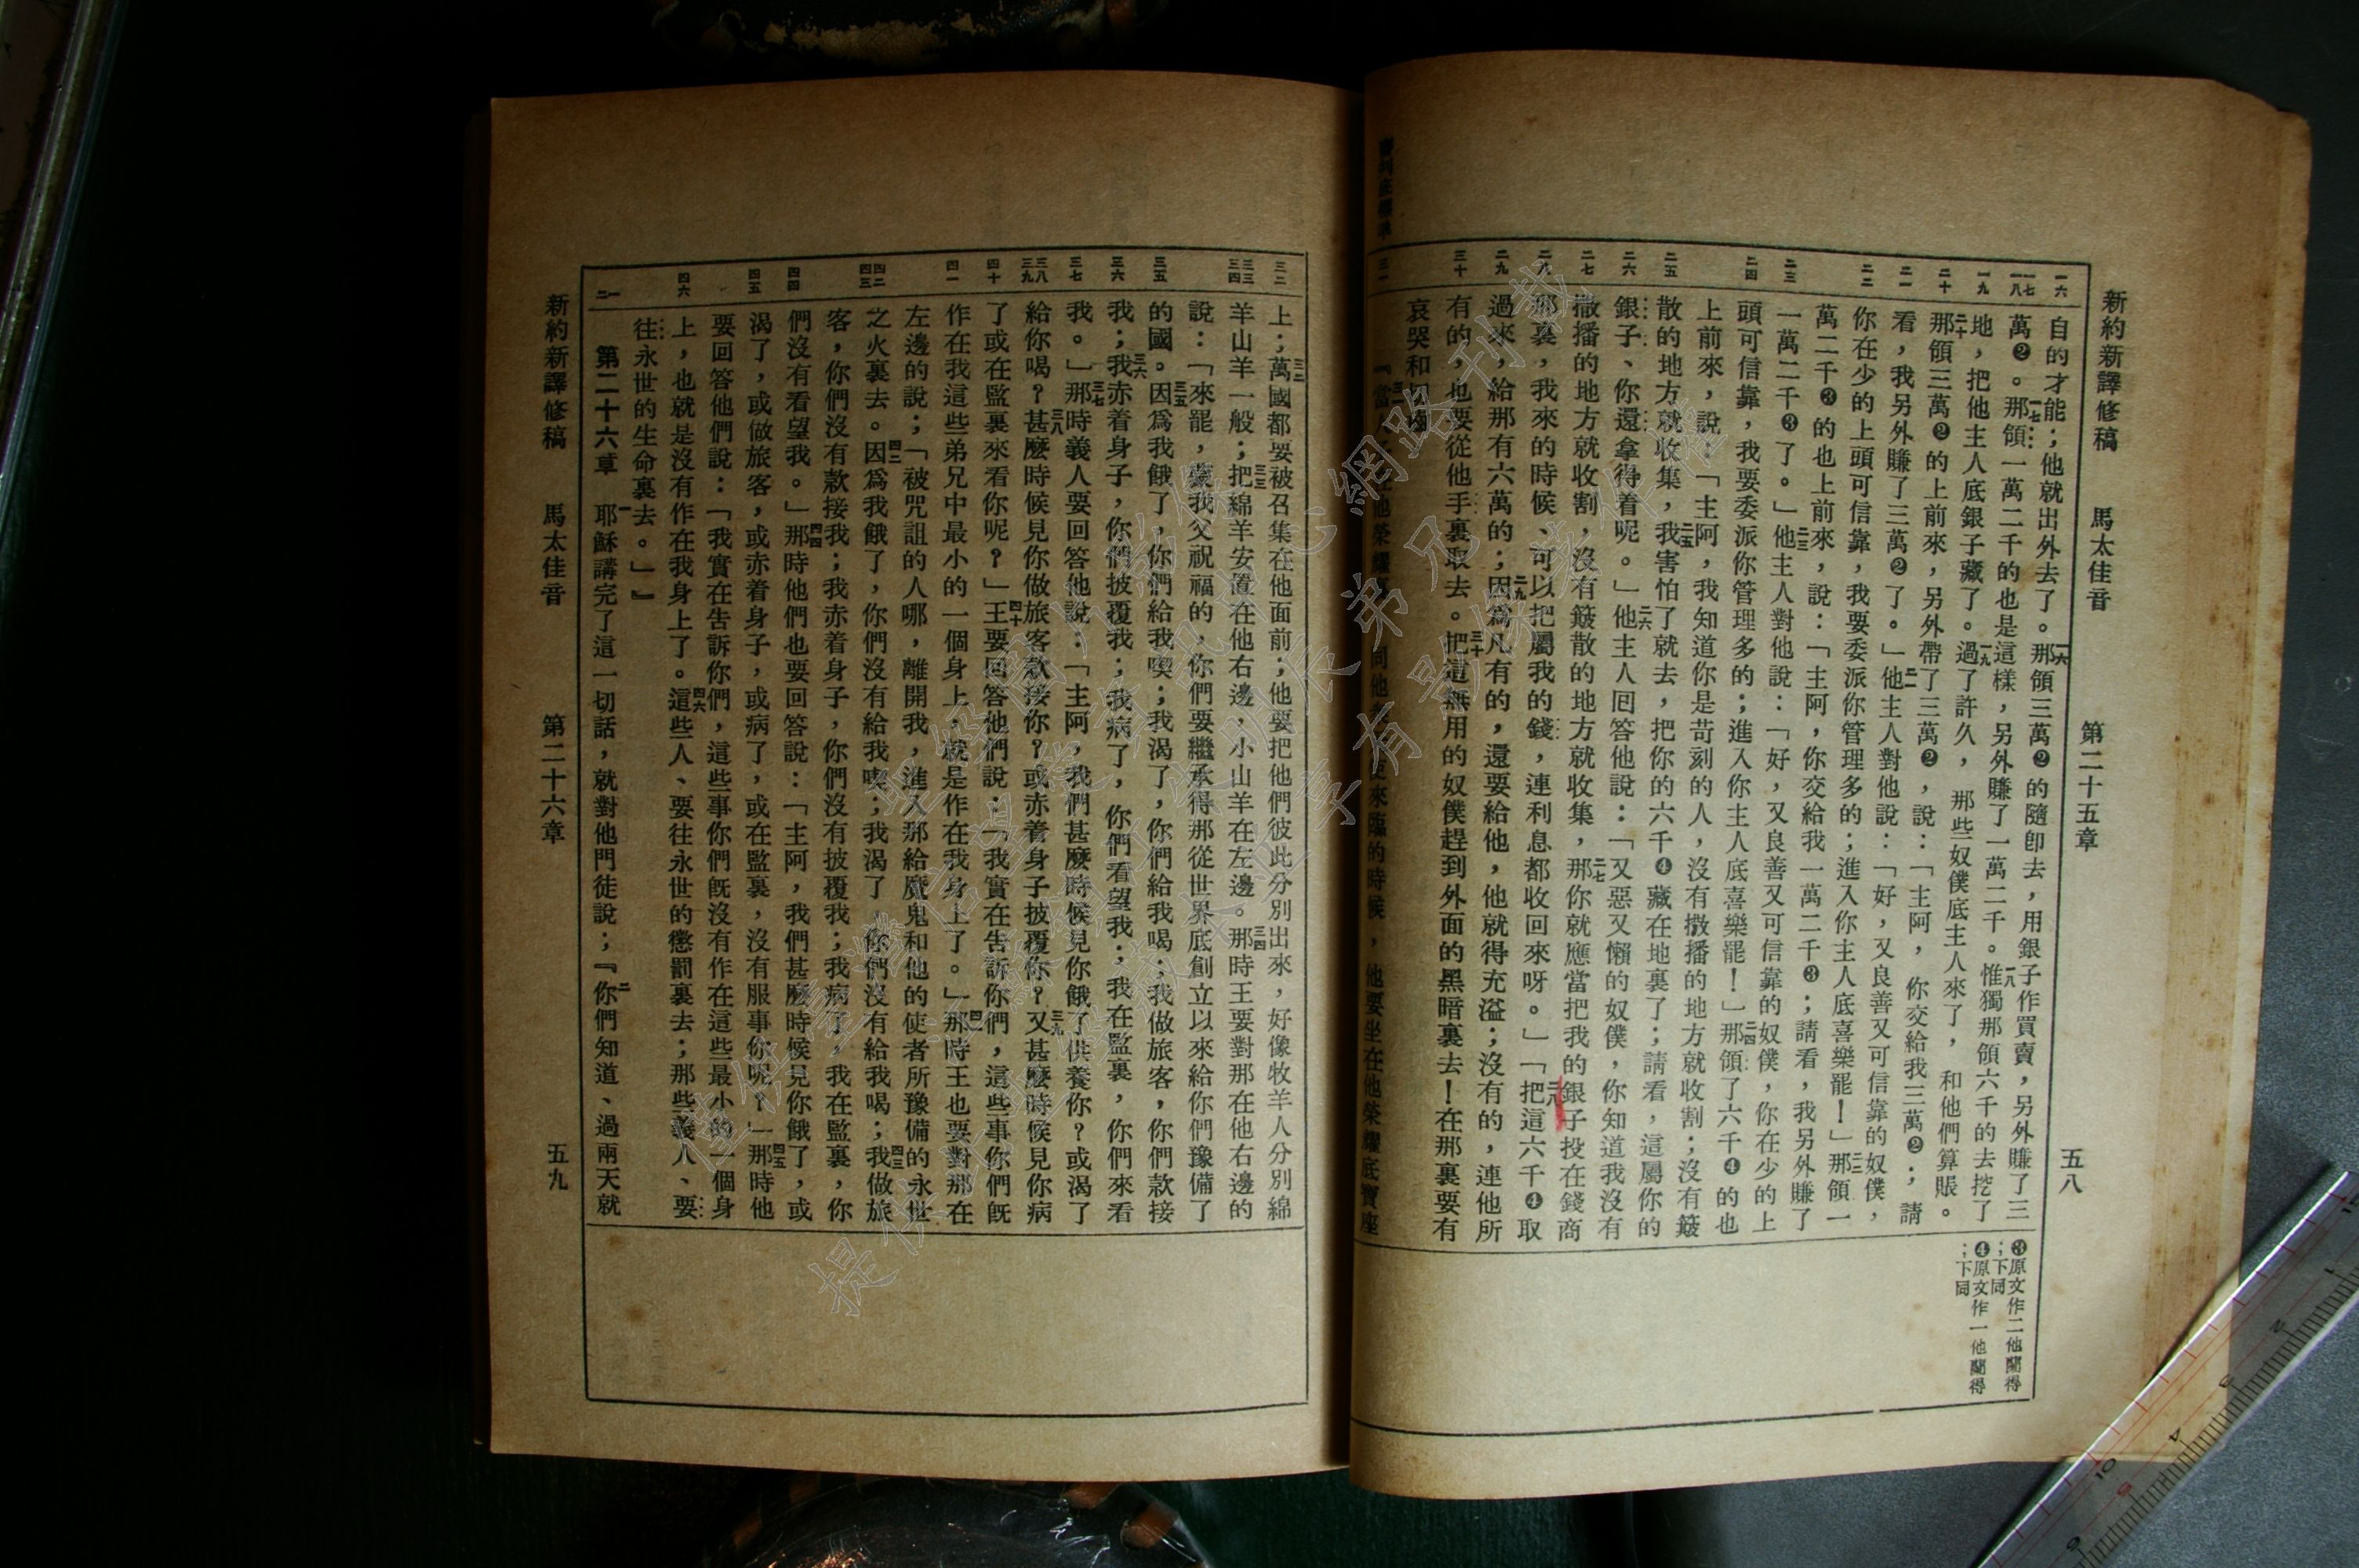 新約新譯修稿　馬太佳音　第二十五章　五八
一六
一七
一八
一九
二十
二一
二二
二三
二四
二五
二六
二七
二八
二九
三十
三一
自的才能；他就出外去了。一六那領三萬❷的隨卽去，用銀子作買賣，另外賺了三
萬❷。一七那領一萬二千的也是這樣，另外賺了一萬二千。一八惟獨那領六千的去挖了
地，把他主人底銀子藏了。一九過了許久，那些奴僕底主人來了，和他們算賬。
二十那領三萬❷的上前來，另外帶了三萬❷，說：「主阿，你交給我三萬❷；請
看，我另外賺了三萬❷了。」二一他主人對他說：「好，又良善又可信靠的奴僕，
你在少的上頭可信靠，我要委派你管理多的；進入你主人底喜樂罷！」二二那領一
萬二千❸的也上前來，說：「主阿，你交給我一萬二千❸；請看，我另外賺了
一萬二千❸了。」二三他主人對他說：「好，又良善又可信靠的奴僕，你在少的上
頭可信靠，我要委派你管理多的；進入你主人底喜樂罷！」二四那領了六千❹的也
上前來，說：「主阿，我知道你是苛刻的人，沒有撒播的地方就收割；沒有簸
散的地方就收集，二五我害怕了就去，把你的六千❹藏在地裏了；請看，這屬你的
銀子、你還拿得着呢。」二六他主人囘答他說：「又惡又懶的奴僕，你知道我沒有
撒播的地方就收割，沒有簸散的地方就收集，二七那你就應當把我的銀子投在錢商
那裏，我來的時候、可以把屬我的錢，連利息都收回來呀。」二八「把這六千❹取
過來，給那有六萬的；二九因爲凡有的，還要給他，他就得充溢；沒有的，連他所
有的，也要從他手裏取去。三十把這無用的奴僕趕到外面的黑暗裏去！在那裏要有
哀哭和切齒
『當他榮耀同他來臨的時候，他要坐在他榮耀底寶座
❸原文作二他關得
；下同
❹原文作一他關得
；下同
三二
三三
三四
三五
三六
三七
三八
三九
四十
四一
四二
四三
四四
四五
四六
一
二
上；三二萬國都要被召集在他面前；他要把他們彼此分別出來，好像牧羊人分別綿
羊山羊一般；三三把綿羊安置在他右邊，小山羊在左邊。三四那時王要對那在他右邊的
說：「來罷，蒙我父祝福的，你們要繼承得那從世界底創立以來給你們豫備了
的國。三五因爲我餓了，你們給我喫；我渴了，你們給我喝；我做旅客，你們款接
我；三六我赤着身子，你們披覆我；我病了，你們看望我；我在監裏，你們來看
我。」三七那時義人要回答他說：「主阿，我們甚麼時候見你餓了供養你？或渴了
給你喝？三八甚麼時候見你做旅客款接你？或赤着身子披覆你？三九又甚麼時候見你病
了或在監裏來看你呢？」四十王要回答他們說：「我實在告訴你們，這些事你們旣
作在我這些弟兄中最小的一個身上，就是作在我身上了。」四一那時王也要對那在
左邊的說；「被咒詛的人哪，離開我，進入那給魔鬼和他的使者所豫備的永世
之火裏去。四二因爲我餓了，你們沒有給我喫；我渴了，你們沒有給我喝；四三我做旅
客，你們沒有款接我；我赤着身子，你們沒有披覆我；我病了，我在監裏，你
們沒有看望我。」四四那時他們也要回答說：「主阿，我們甚麼時候見你餓了，或
渴了，或做旅客，或赤着身子，或病了，或在監裏，沒有服事你呢？」四五那時他
要回答他們說：「我實在告訴你們，這些事你們旣沒有作在這些最小的一個身
上，也就是沒有作在我身上了。四六這些人、要往永世的懲罰裏去；那些義人、要
往永世的生命裏去。」』
第二十六章　一耶穌講完了這一切話，就對他門徒說；『二你們知道、過兩天就
新約新譯修稿　馬太佳音　第二十六章　五九